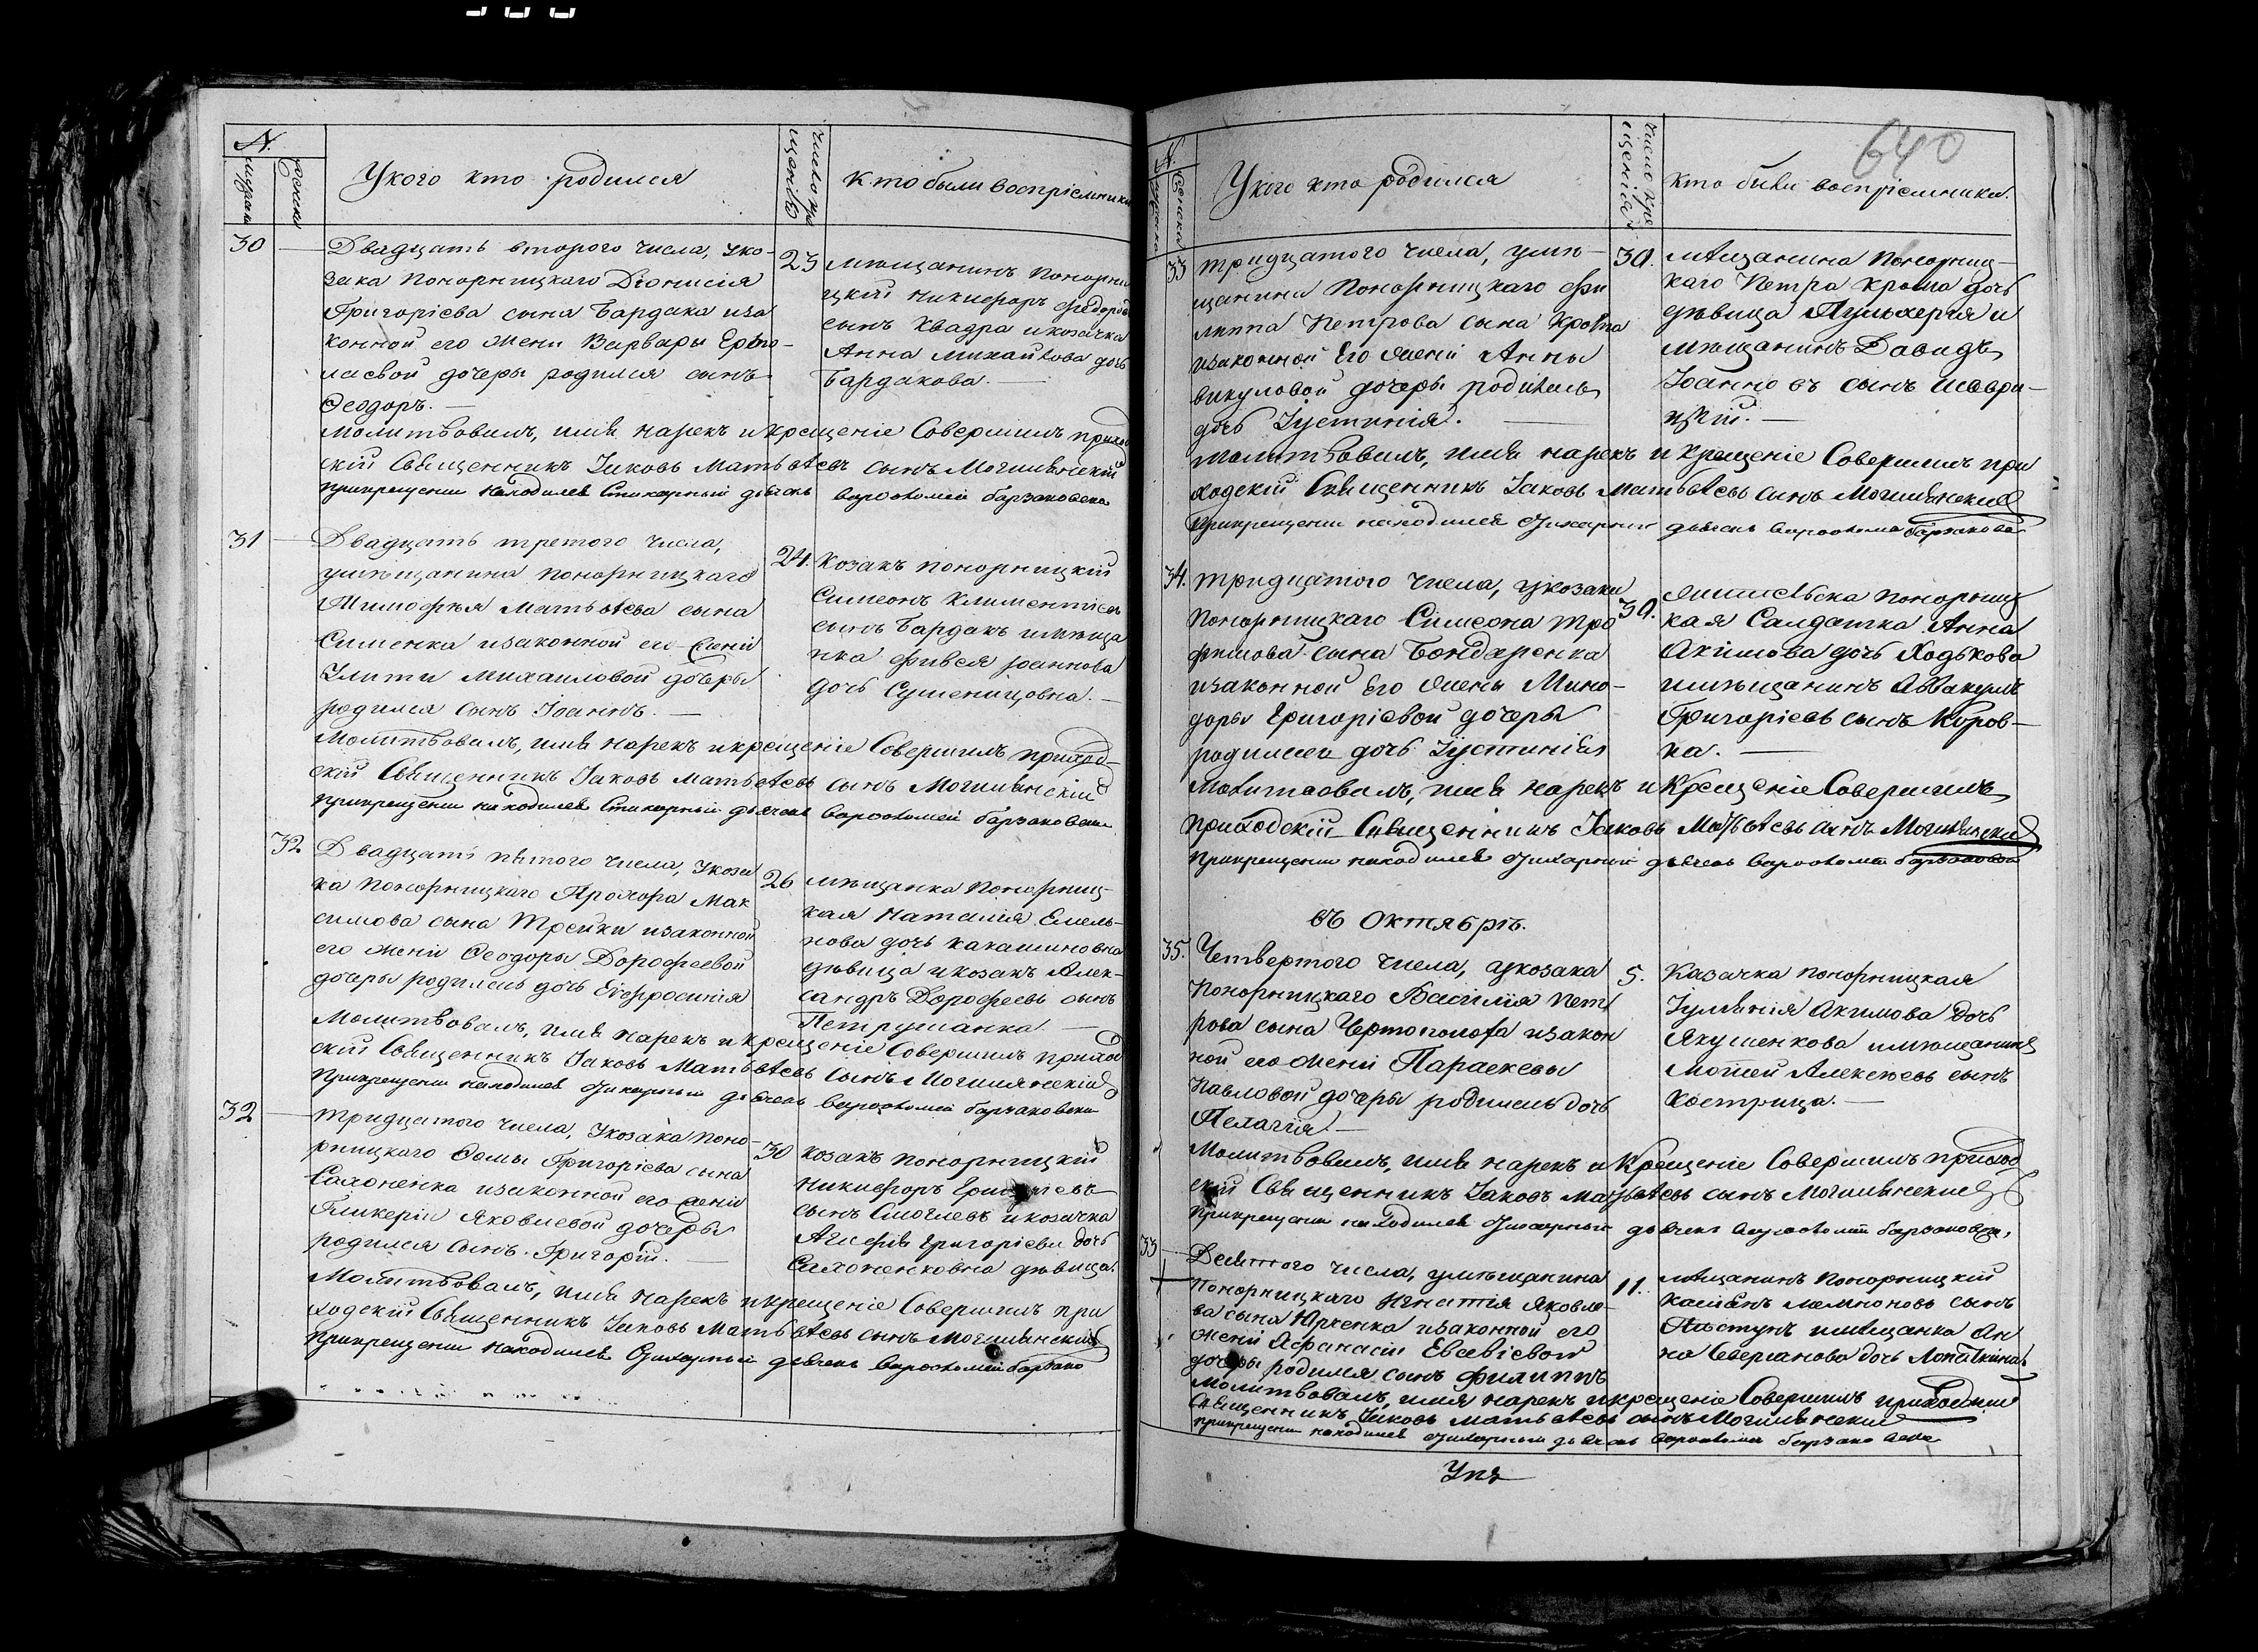 №.
мужска
женска
У кого кто родился
число кре
щенія
Кто были воспріемники
30
Двадцать второго числа, у ко-
зака Понорницкаго Діонисія
Григоріева сына Бардака и за
конной его жены Варвары Ермо-
лаевой дочеры родился сынъ
Феодоръ.
23
мѣщанинъ Понорни
цкій Никифоръ Федоровъ
сынъ Квадра и козачка
Анна Михайлова дочь
Бардакова.
Молитвовалъ, имя нарекъ и крещеніе Совершилъ приход
скій Священникъ Іаковъ Матвѣевъ сынъ Могилянскій
При крещеніи находился Стихарный дьячекъ Варѳоломей Барзаковски
31
Двадцать третого числа,
у мѣщанина Понорницкаго
Тимофѣя Матвѣева сына
Сименка и законной его жены
Улиты Михаиловой дочеры
родился сынъ Іоаннъ.
24.
Козакъ понорницкій
Симеонъ Климентіевъ
сынъ Бардакъ и мѣща
нка Фивея Іоаннова
дочь Сушеницовна.
Молитвовалъ, имя нарекъ и крещеніе Совершилъ приход-
скій Священникъ Іаковъ Матвѣевъ сынъ Могилянскій
При крещеніи находился Стихарный дьячекъ Варѳоломей Барзаковски
32
Двадцать пятого числа, у коза
ка Понорницкаго Прохора Мак
симова сына Тройки и законной
его жены Феодоры Дорофеевой
дочеры родилась дочь Евфросинія
26
мѣщанка Понорниц-
кая Наталія Емель-
нова дочь
дѣвица и козакъ Алек-
сандръ Дорофеевъ сынъ
Петрушанка.
Молитвовалъ, имя нарекъ и крещеніе Совершилъ приход
скій Священникъ Іаковъ Матвѣевъ сынъ Могилянскій
При крещеніи находился Стихарный дьячекъ Варѳоломей Барзаковски
32
Тридцатого числа, у козака Поно-
рницкаго Фомы Григоріева сына
Сахоненка и законной его жены
Гликеріи Яковлевой дочеры
родился сынъ Григорій.
30
козакъ понорницкій
Никифоръ Григоріевъ
сынъ и козачка
Агафія Григоріева дочь
Сахоненковна дѣвица.
Молитвовалъ, имя нарекъ и крещеніе Совершилъ при
ходскій Священникъ Іаковъ Матвѣевъ сынъ Могилянскій
При крещеніи находился Стихарный дьячекъ Варѳоломей Барзако
640
№.
мужска
женска
У кого кто родился
число кре
щенія
Кто были воспріемники.
33
Тридцатого числа, у мѣ-
щанина Понорницкаго Фи
липпа Петрова сына Крота
и законной Его жены Анны
Викуловой дочеры родилась
дочь Іустинія.
30.
мѣщанина Понорниц-
каго Петра Крота дочь
дѣвица Пульхерія и
мѣщанинъ Давидъ
Іоанновъ сынъ
Молитвовалъ, имя нарекъ и Крещеніе Совершилъ при
ходскій Священникъ Іаковъ Матвѣевъ сынъ Могилянскій
При крещеніи находился Стихарный дьячекъ Варѳоломей Барзаковски
34.
Тридцатого числа, у козака
Понорницкаго Симеона Тро
фимова сына Бондаренка
и законной Его жены Мино-
доры Григоріевой дочеры
родилась дочь Іустинія
30.
понорниц
кая Салдатка Анна
Акимова дочь Ходькова
и мѣщанинъ Аввакумъ
Григоріевъ сынъ Коров-
ка.
Молитвовалъ, имя нарекъ и Крещеніе Совершилъ
приходскій Священникъ Іаковъ Матвѣевъ сынъ Могилянскій
При крещеніи находился Стихарный дьячекъ Варѳоломей Барзаковски
въ Октябрѣ.
35.
Четвертого числа, у козака
Понорницкаго Василія Пет
рова сына Чертополоха и закон
ной его жены Параскевы
Павловой дочеры родилась дочь
Пелагія.
5.
Казачка понорницкая
Іулянія Акимова дочь
Якушенкова и мѣщанинъ
Мотей Алексѣевъ сынъ
Кострица.
Молитвовалъ, имя нарекъ и Крещеніе Совершилъ приход
скій Священникъ Іаковъ Матвѣевъ сынъ Могилянскій
При крещеніи находился Стихарный дьячекъ Варѳоломей Барзаковски,
33
Десятого числа, у мѣщанина
Понорницкаго Игнатія Яковле-
ва сына Юрченка и законной его
жены Афанасіи Евсевіевой
дочеры родился сынъ Филиппъ
11.
мѣщанинъ Понорницкій
Касіянъ сынъ
и мѣщанка Ан
на дочь
Молитвовалъ, имя нарекъ и крещеніе Совершилъ приходскій
Священникъ Іаковъ Матвѣевъ сынъ Могилянскій
При крещеніи находился Стихарный дьячекъ Варѳоломей Барзаковски